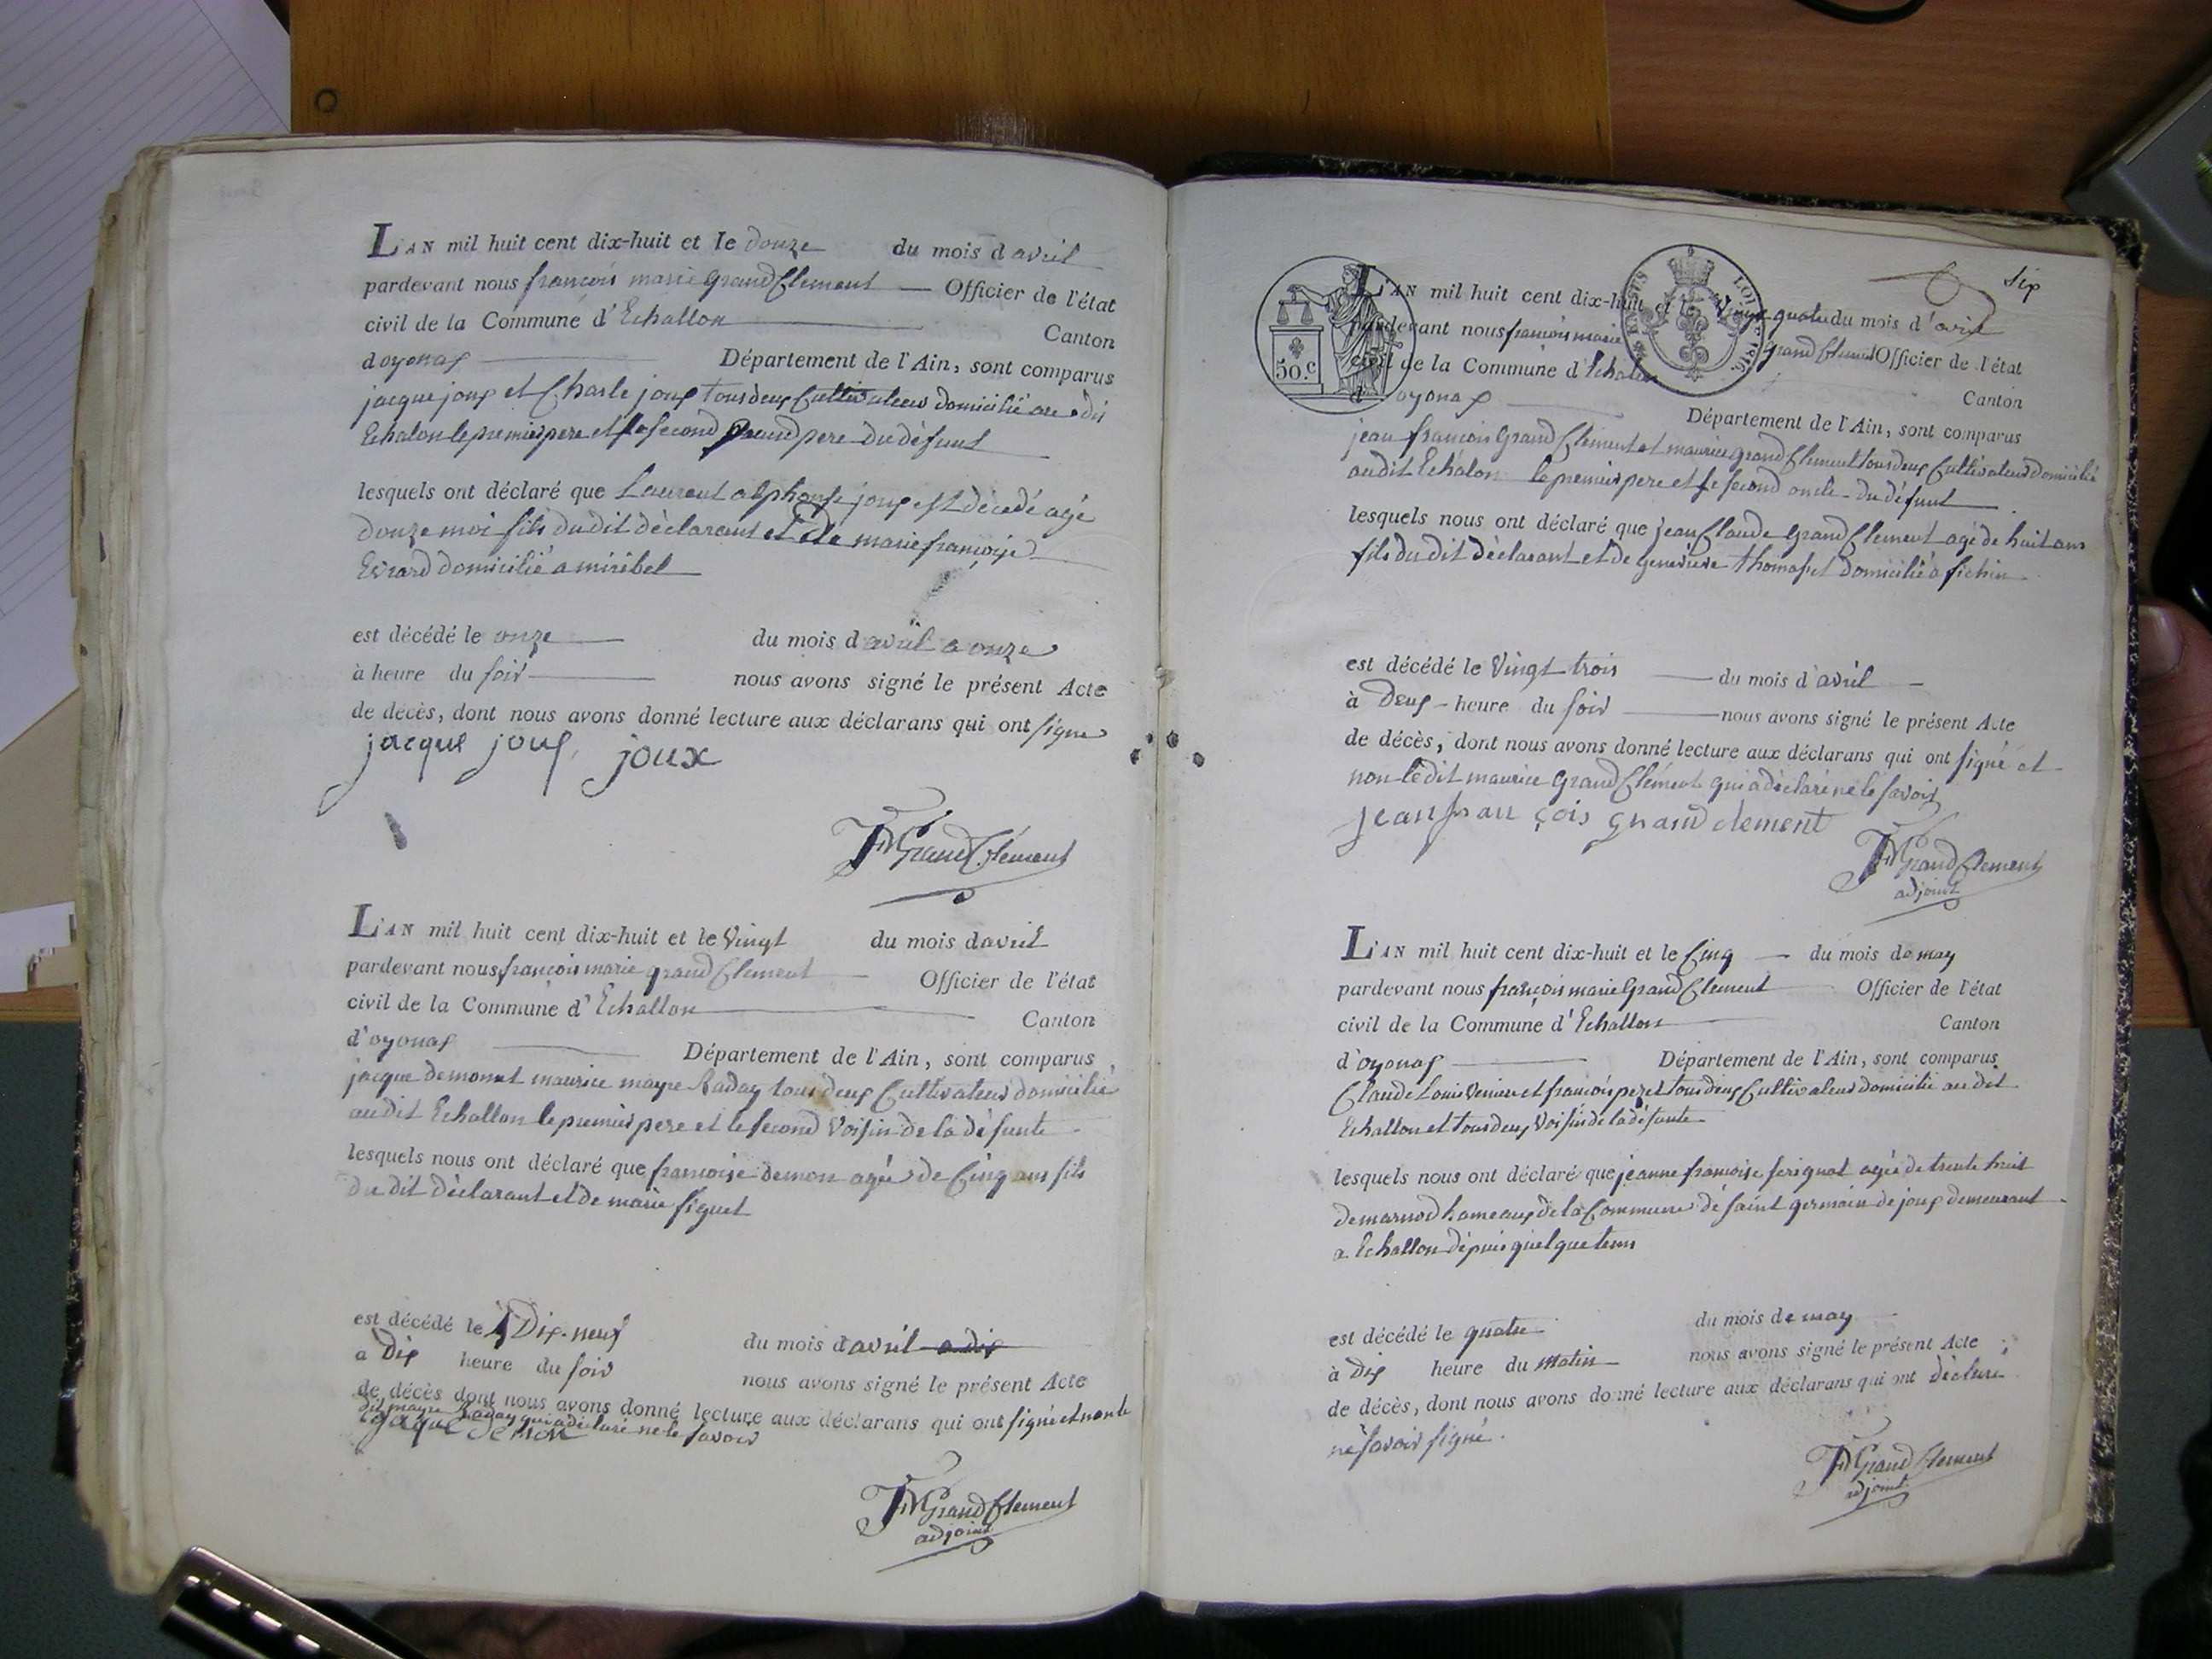 L'AN mil huit cent dix-huit et le douze du mois d avril
pardevant nous françois marie grand Clement Officier de l'état
civil de la Commune d'Echallon
Canton
doyonax Département de l'Ain, sont comparus
jacque joux et Charle joux tous deux Cultivateurs domicilié au dit
Echalon le premier pere et le second grand pere du défunt
lesquels ont déclaré que Laurent alphonse joux est décédé agé
douze moi fils du dit déclarant et de marie françoise
Evrard domicilié a miribel
est décédé le onze du mois d avril a onze
à heure du soir nous avons signé le présent Acte
de décès, dont nous avons donné lecture aux déclarans qui ont signe
jacque joux joux
FMGrandClément
L'AN mil huit cent dix-huit et le Vingt du mois d avril
pardevant nous françois marie grand Clement Officier de l'état
civil de la Commune d'Echallon
Canton
d'oyonax Département de l'Ain, sont comparus
jacque demonet maurice mayre Raday tous deux Cultivateurs domicilié
au dit Echallon le premier pere et le second Voisin de la défunte
lesquels nous ont déclaré que françoise demon agée de Cinq ans fils
du dit déclarant et de marie figuet
est décédé le Dix-neuf du mois d avril a dix
à Dix heure du soir nous avons signé le présent Acte
de décès dont nous avons donné lecture aux déclarans qui ont signé et non le
dit mayre Raday qui a déclaré ne le savoir
jaque demon
FMGrandClement
adjoint
Six
50.c
LOUIS 1816
L'AN mil huit cent dix-huit et le Vingt quatre du mois d'avril
pardevant nous françois marie grand Clement Officier de l'état
civil de la Commune d'Echalon
Canton
d'oyonax Département de l'Ain, sont comparus
jean françois Grand Clement et maurice grand Clement tous deux Cultivateurs domicilié
au dit Echalon le premier pere et le second oncle du défunt
lesquels nous ont déclaré que jean Claude Grand Clement agé de huit ans
fils du dit déclarant et de genevieve thomasset domicilié à fichin
est décédé le Vingt trois du mois d'avril
à Deux heure du soir nous avons signé le présent Acte
de décès, dont nous avons donné lecture aux déclarans qui ont signé et
non le dit maurice Grand Clément qui a déclaré ne le savoir
jean fran çois grand clement
FMGrandClement
adjoint
L'AN mil huit cent dix-huit et le Cinq du mois de may
pardevant nous françois marie Grand Clement Officier de l'état
civil de la Commune d'Echallon
Canton
d'oyonax Département de l'Ain, sont comparus
Claude Louis Veniere et françois peret tous deux Cultivateurs domicilié au dit
Echallon et tous deux Voisin de la défunte
lesquels nous ont déclaré que jeanne françoise serignat agée de trente huit
de marnod hameaux de la Commune de saint germain de joux demeurant
a Echallon depuis quelque tems
est décédé le quatre du mois de may
à Dix heure du matin nous avons signé le présent Acte
de décès, dont nous avons donné lecture aux déclarans qui ont déclaré
ne savoir signé.
FMGrandClement
adjoint